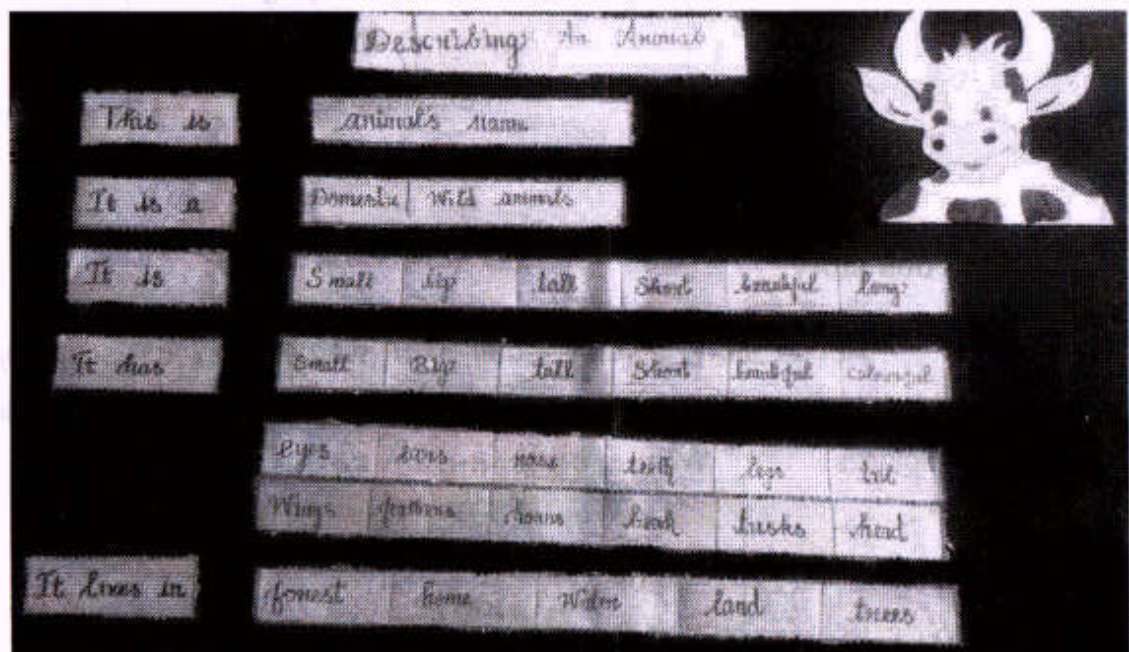 Describing An Animal
This is animal's name
It is a Domestic Wild animals
It is Small big tall Short beautiful long
It has Small Big tall Short beautiful colourful
eyes ears nose teeth legs tail
Wings feathers horns beak tusks head
It lives in forest home Water land trees